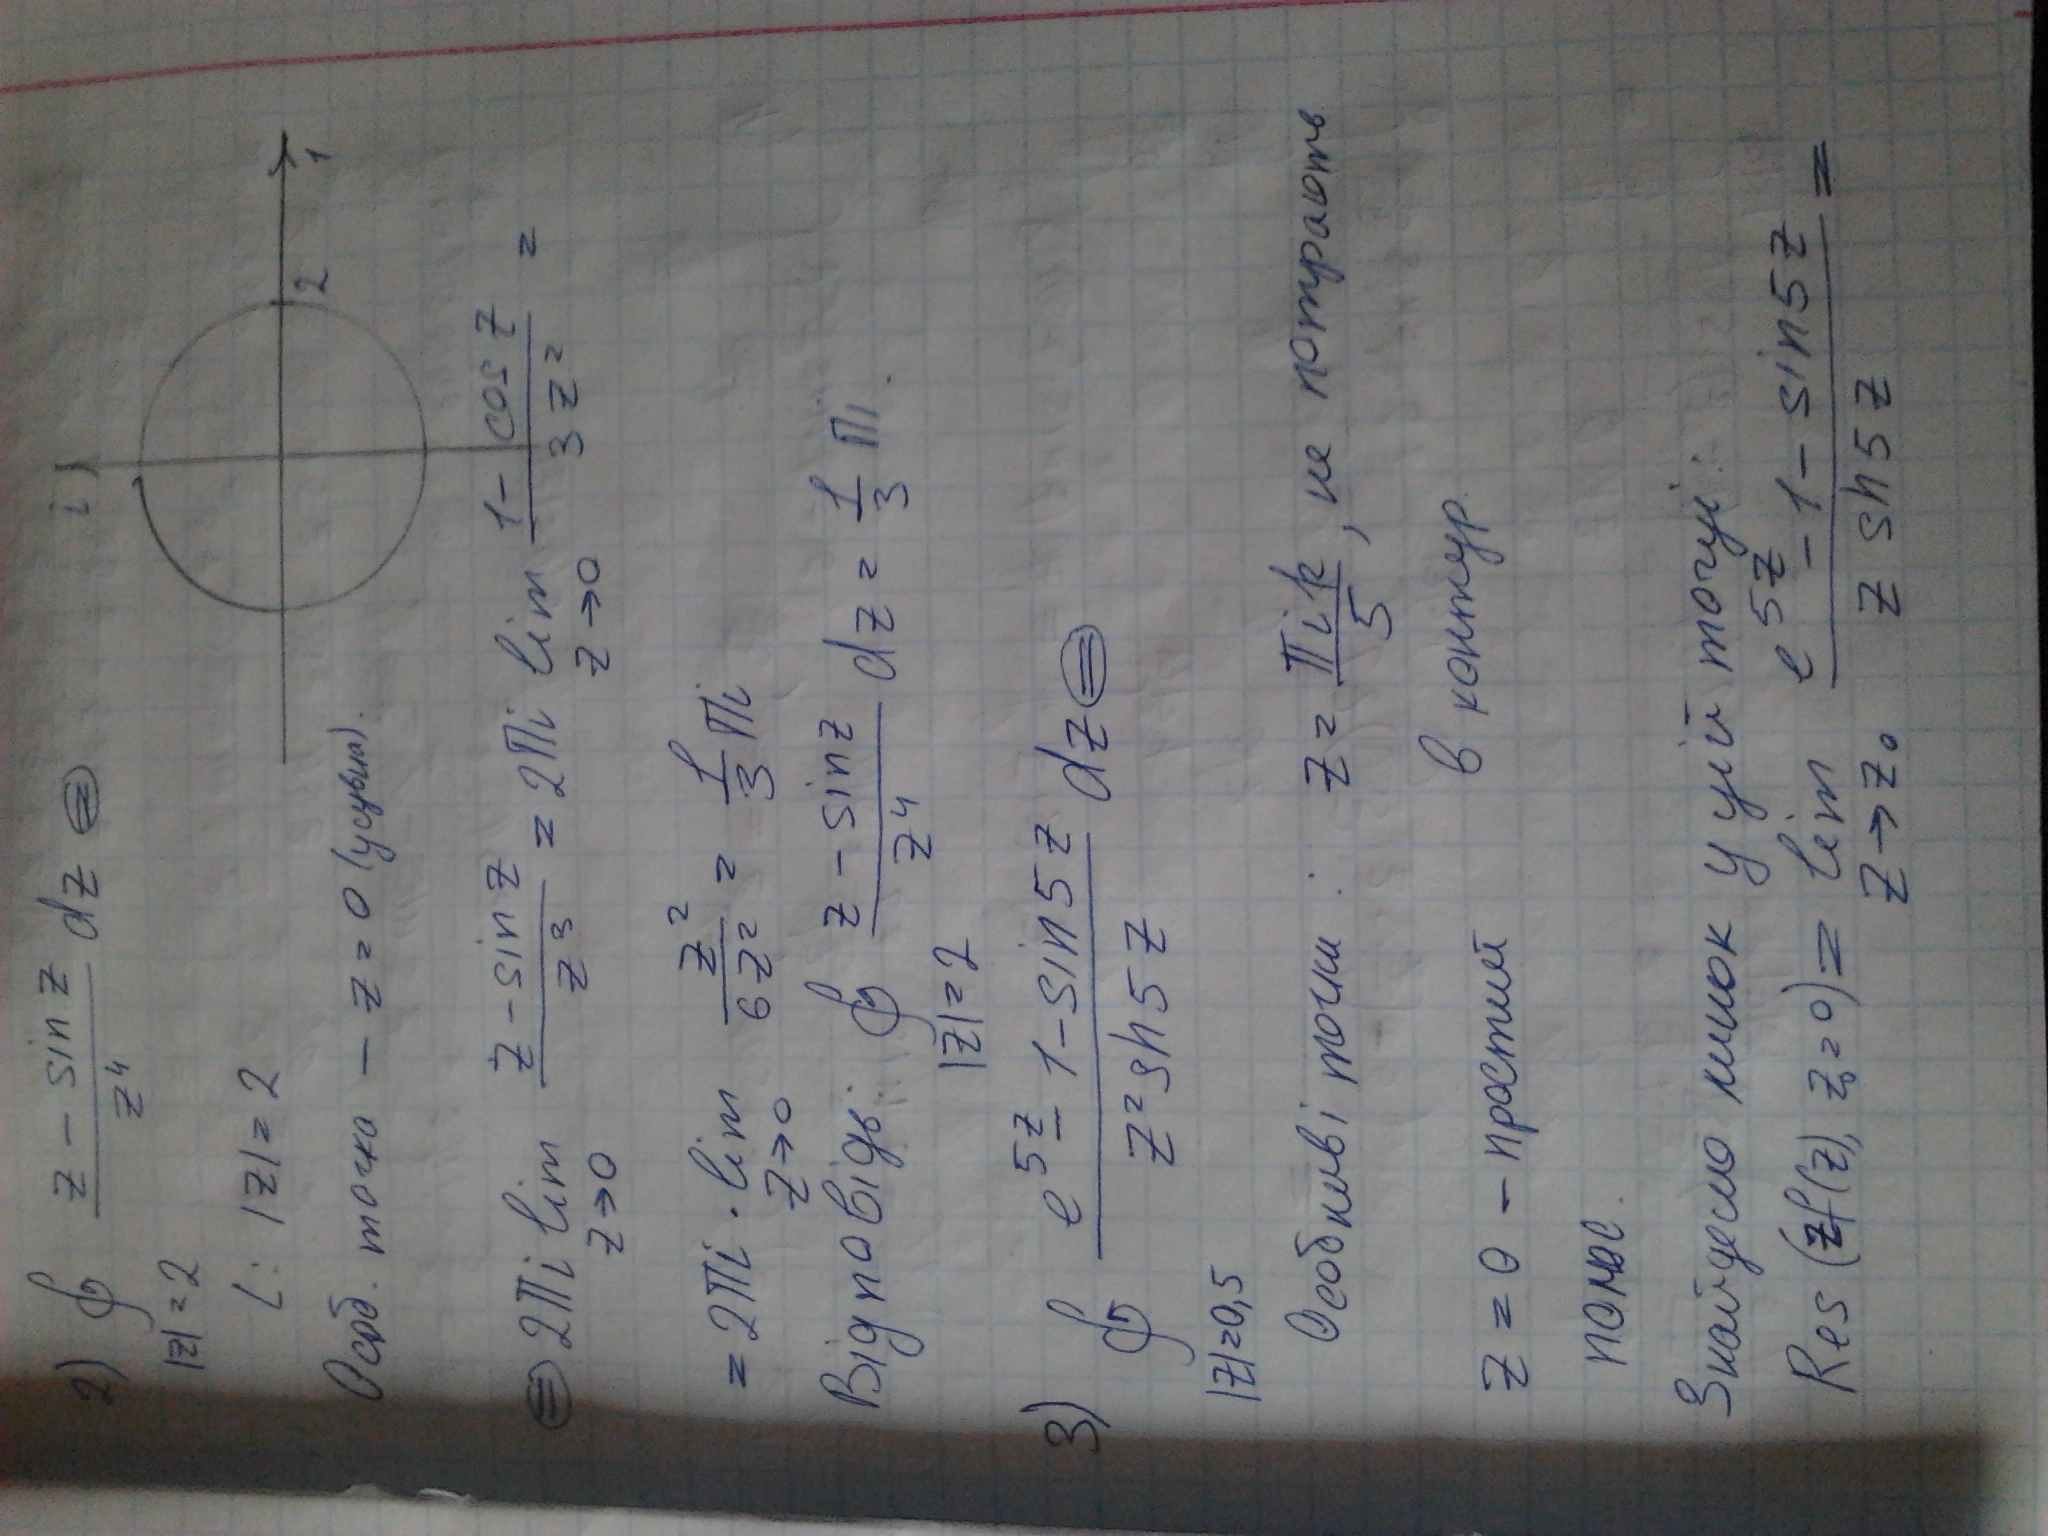 2) ∮ (z - sin z)/z⁴ dz ⊜
|z| = 2
i
L: |z| = 2
2 1
Особ. точка - z = 0 (усувна).
⊜ 2πi lim (z - sin z)/z³ = 2πi lim (1 - cos z)/3z² =
z→0 z→0
= 2πi · lim z²/6z² = 1/3 πi
z→0
Відповідь: ∮ (z - sin z)/z⁴ dz = 1/3 πi.
|z| = 2
3) ∮ (e^5z - 1 - sin5z)/(z² sh5z) dz ⊜
|z| = 0,5
Особливі точки : z = πik/5, не потрапають
в контур.
z = 0 - простий
полюс.
Знайдемо лишок у цій точці:
Res (zf(z), z₀ = 0) = lim (e^5z - 1 - sin5z)/(z sh5z) =
z→z₀